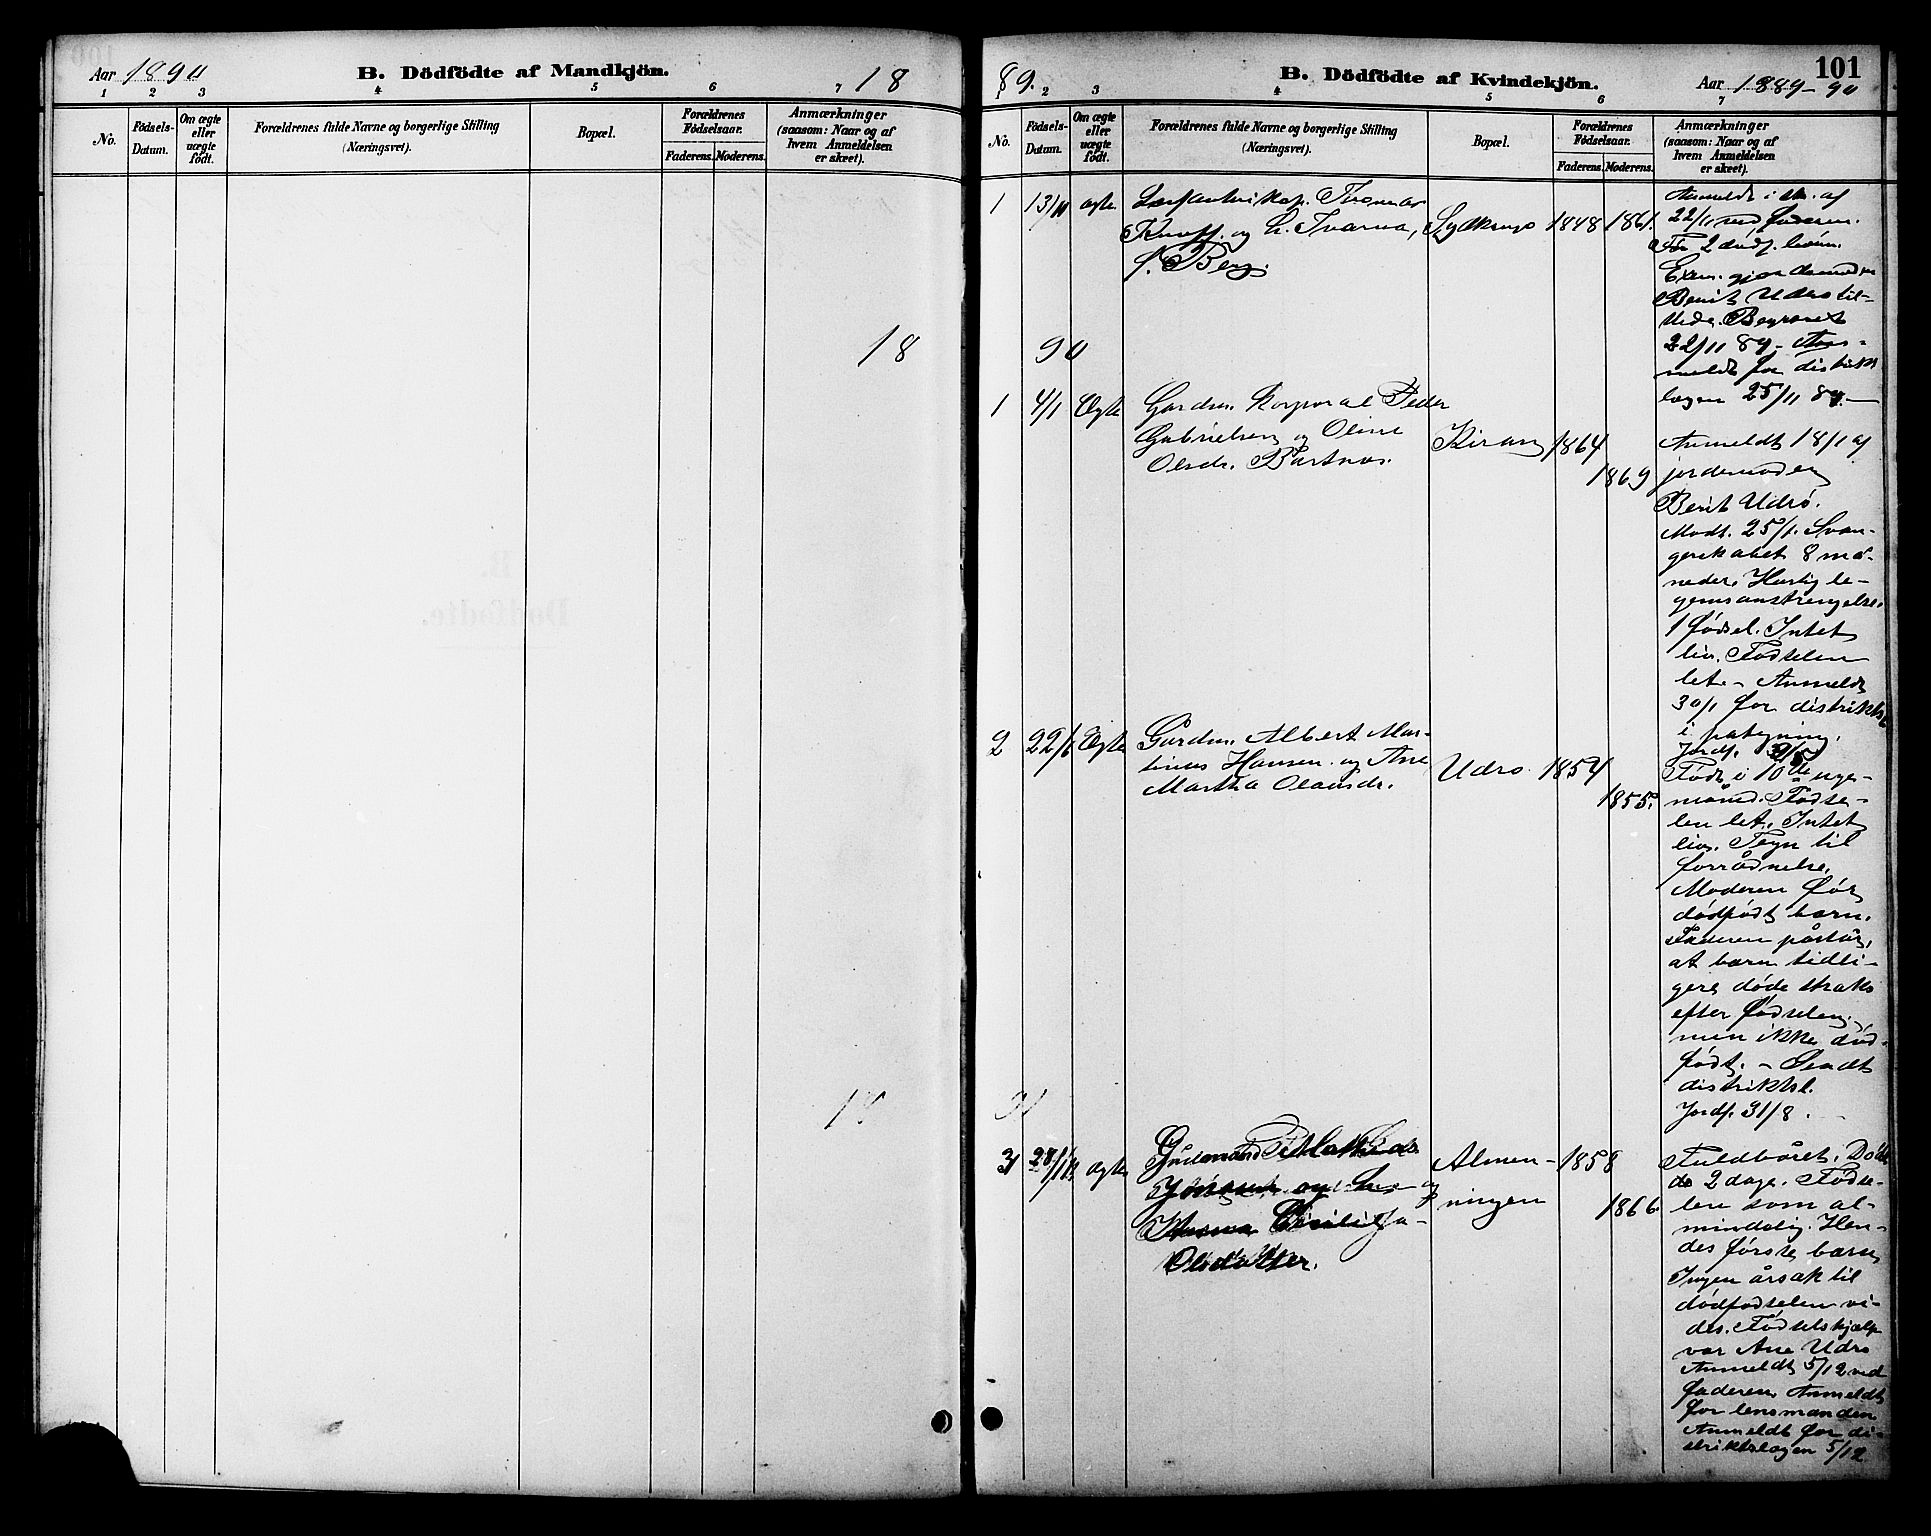 Aar 1890
B. Dödfödte af Mandkjön.
1 2 3 4 5 6 7
No.
Födsels-
Datum.
Om ægte
eller
uægte
födt.
Forældrenes fulde Navne og borgerlige Stilling
(Næringsvei).
Bopæl.
Forældrenes
Födselsaar.
Faderens. Moderens.
Anmærkninger
(saasom: Naar og af
hvem Anmeldelsen
er skeet).
18
18
B. Dödfödte af Kvindekjön.
101
Aar 1889-90
89.
1 2 3 4 5 6 7
No.
Födsels-
Datum.
Om ægte
eller
uægte
födt.
Forældrenes fulde Navne og borgerlige Stilling
(Næringsvei).
Bopæl.
Forældrenes
Födselsaar.
Faderens. Moderens.
Anmærkninger
(saasom: Naar og af
hvem Anmeldelsen
er skeet).
1 13/11 ægte
Thomas
og
f. Berg.
1848 1861.
22/11 ved faderen.
Før 2 dødf. børn.
Berit Udrø til-
stede. Begravet
22/11 89. An-
meldt for distrikts
lægen 25/11 89.
90
1 4/1 Ægte
Gårdm. Korporal Peder
Gabrielsen og Oline
Olsdr. Bartnes.
Kiran
1864
1869
Anmeldt 18/1 af
jordemoder
Berit Udrø.
Modt. 25/1. Svan-
gerskabet 8 må-
neder. Hurtig le-
gemsanstrengelse.
1 fødsel. Intet
liv. Fødselen
let. - Anmeldt
30/1 for distrikts
2 22/6 Ægte
Gårdm. Albert Mar-
tinus Hansen og Ane
Martha Olausdr.
Udrø
1854
1855.
Jordf.
Født i 10de uge-
måned. Fødse-
len let. Intet
liv. Tegn til
forrådnelse.
Moderen før
dødfødt børn.
Faderen påstår,
at børn tidli-
gere døde straks
efter fødselen,
men ikke død-
født. - Sendt
distriktsl.
Jordf. 31/8.
91
3 28/11 ægte
Olsdatter.
Almen-
ningen
1858
1866.
Fuldbåret. Død
2 dage. Fødse-
len som al-
mindelig. Hen-
des første barn.
Ingen årsak til
dødfødselen vi-
des. Fødselshjælp
var Ane Udrø
Anmeldt 5/12 ved
faderen. Anmeldt
for lensmanden
Anmeldt for di-
striktslægen 5/12